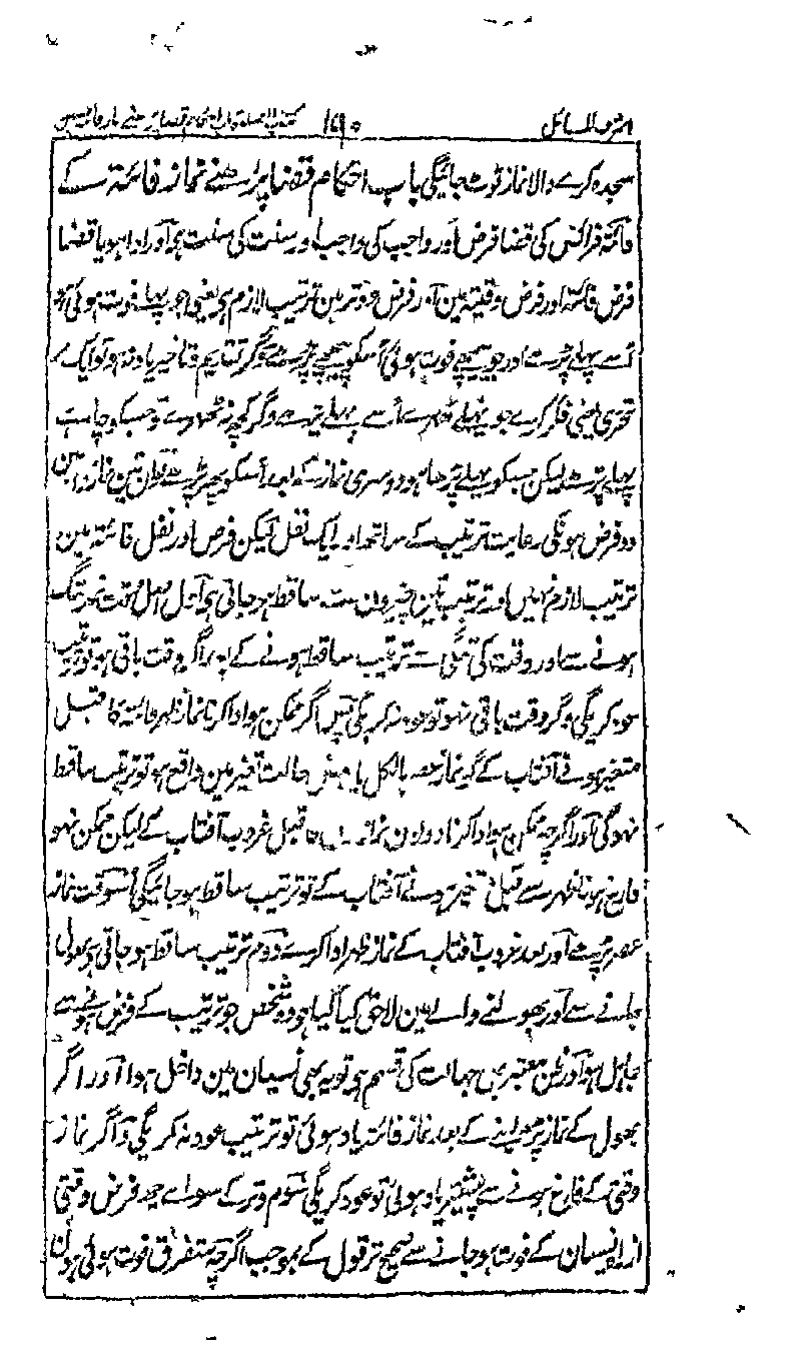 اشرف المسائل ۱۶۹۰
سجدہ کرے والا نماز ٹوٹ جائیگی باب احکام قضا پڑھنے نماز فائتہ کے
فائتہ فرائض کی قضا فرض اور واجب کی واجب اور سنت کی سنت ہی اور ادا ہو یا قضا
فرض فائتہ اور فرض وقتیہ مین اور فرض و وتر مین ترتیب لازم ہی یعنی جو پہلے فوت ہوئی ہو
اُسے پہلے پڑھے اور جو پیچھے فوت ہوئی اُسکو پیچھے پڑھے وگر تقدیم و تاخیر یاد نہ ہو تو ایک
تحری یعنی فکر کرے جو پہلے ٹھہرے اُسے پہلے پڑھے وگر کچھ نہ ٹھہرے تو جسکو چاہے
پہلے پڑھے لیکن جسکو پہلے پڑھا ہو دوسری نماز کے بعد اُسکو پھر پڑھے تین نماز
دو فرض ہونگی رعایت ترتیب کے ساتھ اور ایک نفل لیکن فرض اور نفل فائتہ مین
ترتیب لازم نہین اور ترتیب تین چیزون سے ساقط ہو جاتی ہی اول وقت تنگ
ہونے سے اور وقت کی تنگی سے ترتیب ساقط ہونے کے بعد اگر وقت باقی ہو تو ترتیب
عود کریگی وگر وقت باقی نہو تو عود نہ کریگی پس اگر ممکن ہو ادا کرنا نماز ظہر فائتہ کا قبل
متغیر ہونے آفتاب کے گو نماز عصر بالکل یا بعض حالت تغیر مین واقع ہو تو ترتیب ساقط
نہوگی اور اگرچہ ممکن ہو ادا کرنا دونون نمازون کا قبل غروب آفتاب کے لیکن ممکن نہو
فارغ ہونا ظہر سے قبل تغیر ہونے آفتاب کے تو ترتیب ساقط ہو جائیگی اُسوقت نماز
عصر پڑھے اور بعد غروب آفتاب کے نماز ظہر ادا کرے دوم ترتیب ساقط ہو جاتی ہی بھول
جانے سے اور بھولنے والے مین لاحق کیا گیا ہی وہ شخص جو ترتیب کے فرض ہونے سے
جاہل ہو اور ظن معتبر بھی جہالت کی قسم ہی تو یہ بھی نسیان مین داخل ہوا اور اگر
بھول کے نماز پڑھ لینے کے بعد نماز فائتہ یاد ہوئی تو ترتیب عود نہ کریگی و اگر نماز
وقتی کے فارغ ہونے سے پیشتر یاد ہوئی تو عود کریگی سوم وتر کے سوا ے چھ فرض وقتی
کے فوت ہو جانے سے صحیح تر قول کے بموجب اگرچہ متفرق فوت ہوئی ہون